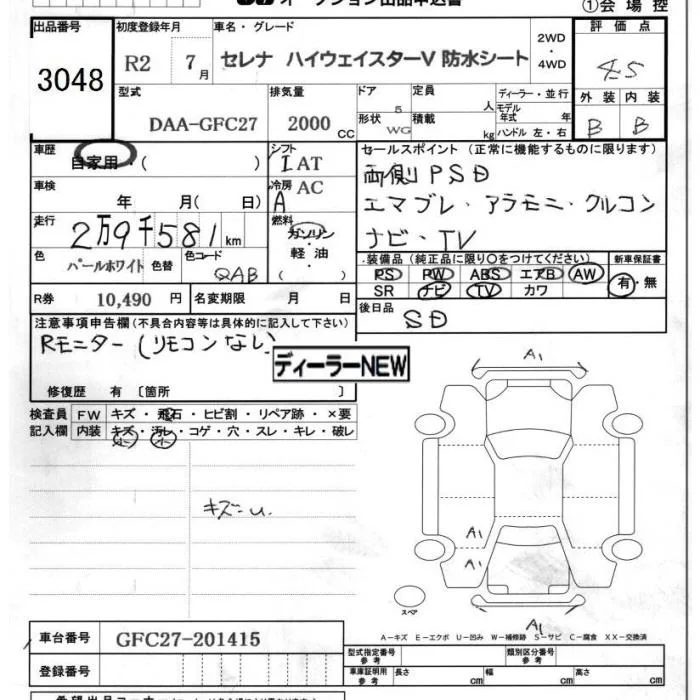 オークション出品申込書
①会場控
出品番号 初度登録年月 車名・グレード 2WD・4WD 評価点
3048 R2 7月 セレナ ハイウェイスターV 防水シート 4.5
型式 排気量 ドア 定員 ディーラー・並行 外装 内装
DAA-GFC27 2000 CC 5 人 モデル年式 年 B B
形状 WG 積載 kg ハンドル 左・右
車歴 シフト セールスポイント (正常に機能するものに限ります)
自家用・( ) I AT 両側PSD
車検 冷房 AC
年 月( 日) A エマブレ・アラモニ・クルコン
走行 燃料
2万9千581km ガソリン・軽油・( ) ナビ・TV
色 色替 色コード 装備品(純正品に限り〇をつけてください) 新車保証書
パールホワイト QAB PS PW ABS エアB AW 有・無
SR ナビ TV カワ
R券 10,490 円 名変期限 月 日 後日品 SD
注意事項申告欄(不具合内容等は具体的に記入して下さい)
Rモニター(リモコンなし)
ディーラーNEW
修復歴 有 〔箇所 〕
検査員 FW キズ・飛石・ヒビ割・リペア跡・×要
記入欄 内装 キズ・汚レ・コゲ・穴・スレ・キレ・破レ
小 小
キズ=u.
A1
A1
A1
スペア
A1
A－キズ E－エクボ U－凹み W－補修跡 S－サビ C－腐食 XX－交換済
車台番号 GFC27-201415 型式指定番号 参考 類別区分番号 参考
登録番号 車庫証明用 参考 長さ cm 幅 cm 高さ cm